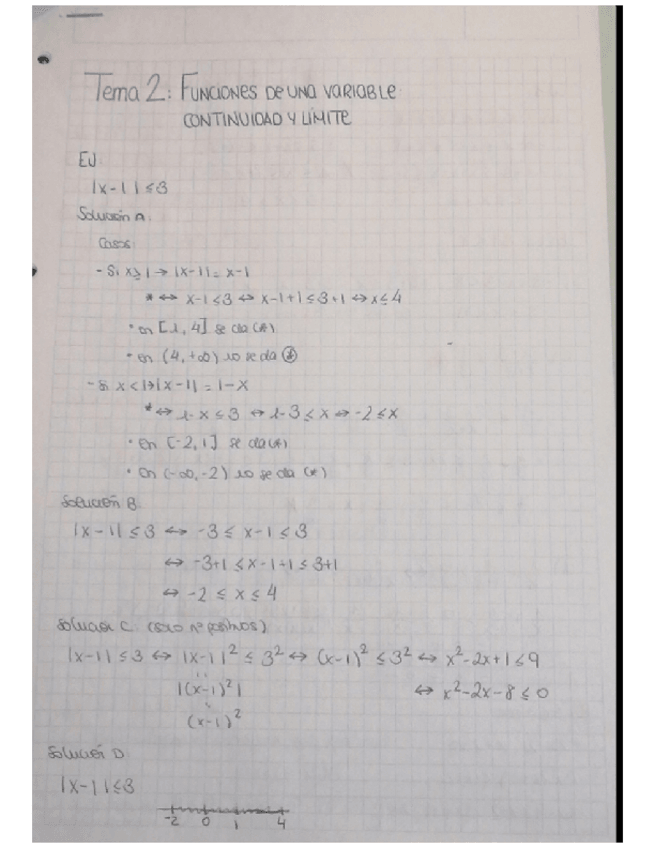 Tema 2: FUNCIONES DE UNA VARIABLE
CONTINUIDAD Y LÍMITE
EJ
|x-1| ≤ 3
Solución A:
Casos:
- Si x ≥ 1 → |x-1| = x-1
* ↔ x-1 ≤ 3 ↔ x-1+1 ≤ 3+1 ↔ x ≤ 4
• En [1, 4] se da (*)
• En (4, +∞) no se da (*)
- Si x < 1 → |x-1| = 1-x
* ↔ 1-x ≤ 3 ↔ 1-3 ≤ x ↔ -2 ≤ x
• En [-2, 1] se da (*)
• En (-∞, -2) no se da (*)
Solución B
|x-1| ≤ 3 ↔ -3 ≤ x-1 ≤ 3
↔ -3+1 ≤ x-1+1 ≤ 3+1
↔ -2 ≤ x ≤ 4
Solución C: (solo nº positivos)
|x-1| ≤ 3 ↔ |x-1|² ≤ 3² ↔ (x-1)² ≤ 3² ↔ x²-2x+1 ≤ 9
|(x-1)²| ↔ x²-2x-8 ≤ 0
(x-1)²
Solución D
|x-1| ≤ 3
-2 0 1 4